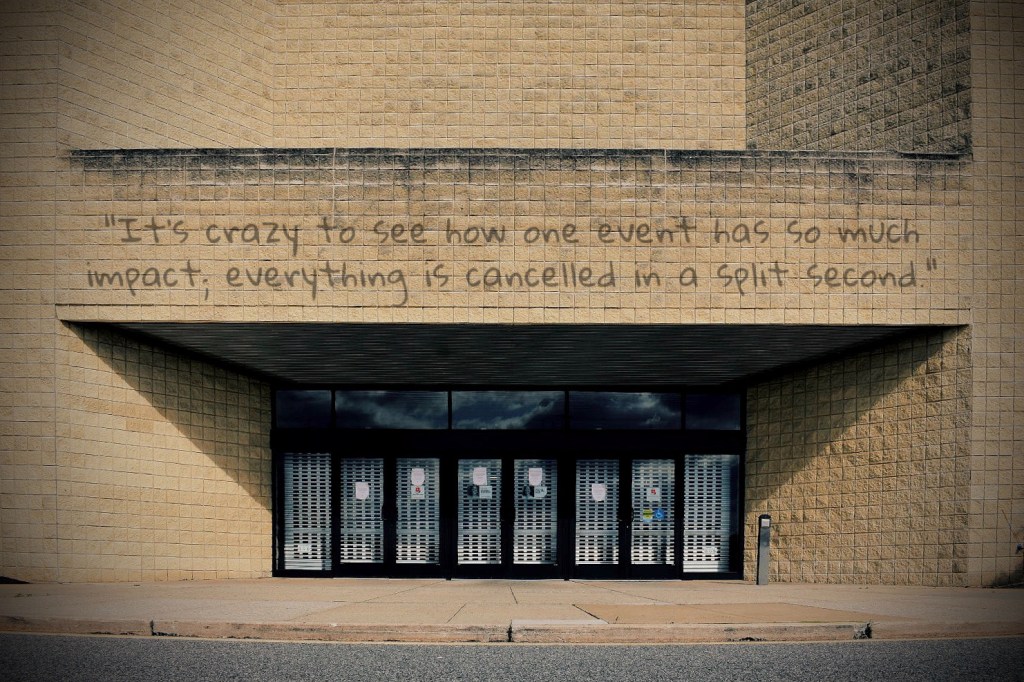 "It's crazy to see how one event has so much
impact; everything is cancelled in a split second."